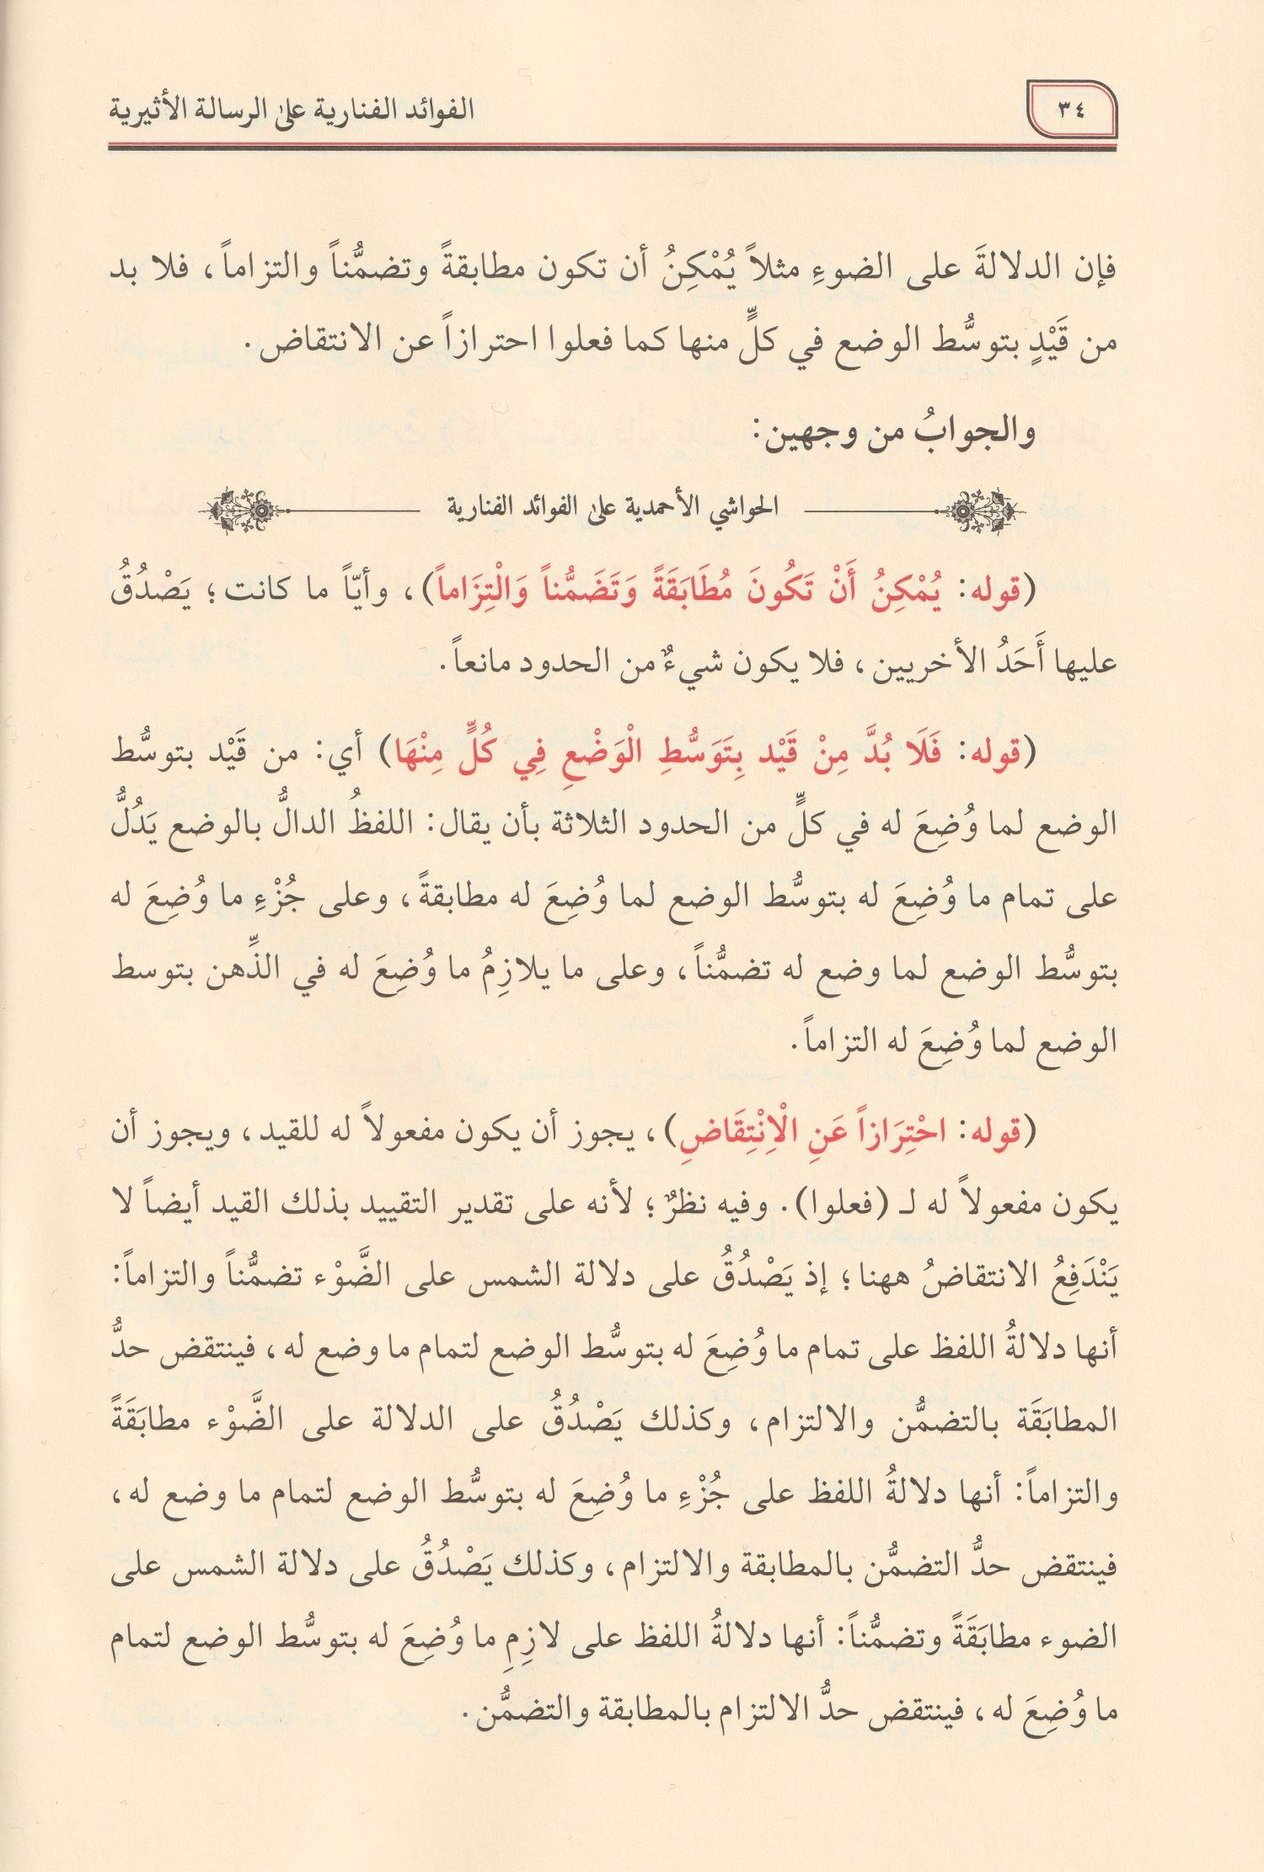 ٣٤
الفوائد الفنارية على الرسالة الأثيرية
فإن الدلالةَ على الضوءِ مثلاً يُمْكِنُ أن تكون مطابقةً وتضمُّناً والتزاماً، فلا بد
من قَيْدٍ بتوسُّط الوضع في كلٍّ منها كما فعلوا احترازاً عن الانتقاض.
والجوابُ من وجهين:
الحواشي الأحمدية على الفوائد الفنارية
(قوله: يُمْكِنُ أَنْ تَكُونَ مُطَابَقَةً وَتَضَمُّناً وَالْتِزَاماً)، وأيّاً ما كانت؛ يَصْدُقُ
عليها أَحَدُ الأخريين، فلا يكون شيءٌ من الحدود مانعاً.
(قوله: فَلَا بُدَّ مِنْ قَيْد بِتَوَسُّطِ الْوَضْعِ فِي كُلٍّ مِنْهَا) أي: من قَيْد بتوسُّط
الوضع لما وُضِعَ له في كلٍّ من الحدود الثلاثة بأن يقال: اللفظُ الدالُّ بالوضع يَدُلُّ
على تمام ما وُضِعَ له بتوسُّط الوضع لما وُضِعَ له مطابقةً، وعلى جُزْءِ ما وُضِعَ له
بتوسُّط الوضع لما وضع له تضمُّناً، وعلى ما يلازِمُ ما وُضِعَ له في الذِّهن بتوسط
الوضع لما وُضِعَ له التزاماً.
(قوله: احْتِرَازاً عَنِ الْاِنْتِقَاضِ)، يجوز أن يكون مفعولاً له للقيد، ويجوز أن
يكون مفعولاً له لـ (فعلوا). وفيه نظرٌ؛ لأنه على تقدير التقييد بذلك القيد أيضاً لا
يَنْدَفِعُ الانتقاضُ ههنا؛ إذ يَصْدُقُ على دلالة الشمس على الضَّوْء تضمُّناً والتزاماً:
أنها دلالةُ اللفظ على تمام ما وُضِعَ له بتوسُّط الوضع لتمام ما وضع له، فينتقض حدُّ
المطابَقَة بالتضمُّن والالتزام، وكذلك يَصْدُقُ على الدلالة على الضَّوْء مطابَقَةً
والتزاماً: أنها دلالةُ اللفظ على جُزْءِ ما وُضِعَ له بتوسُّط الوضع لتمام ما وضع له،
فينتقض حدُّ التضمُّن بالمطابقة والالتزام، وكذلك يَصْدُقُ على دلالة الشمس على
الضوء مطابَقَةً وتضمُّناً: أنها دلالةُ اللفظ على لازِمِ ما وُضِعَ له بتوسُّط الوضع لتمام
ما وُضِعَ له، فينتقض حدُّ الالتزام بالمطابقة والتضمُّن.